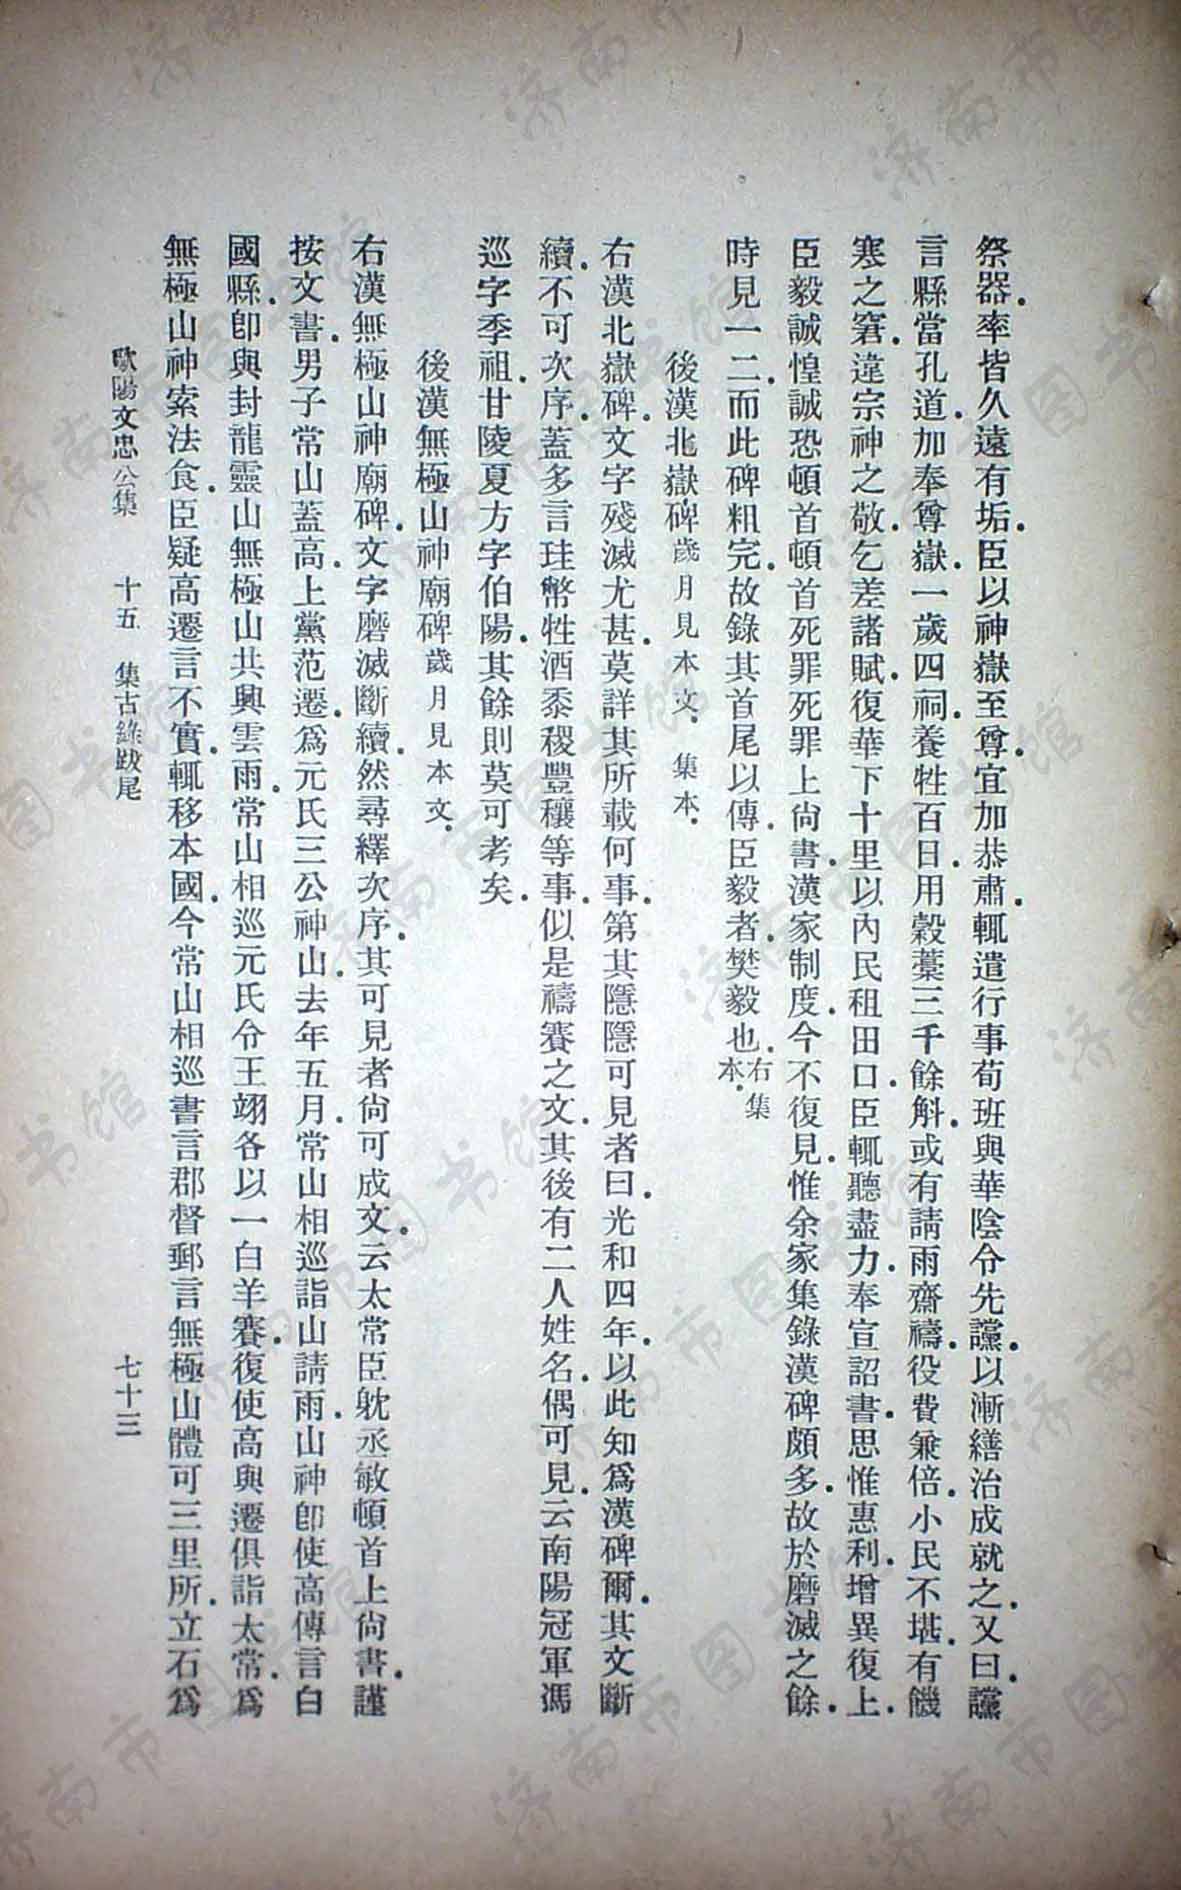 祭器率皆久遠有垢臣以神嶽至尊宜加恭肅輒遣行事荀班與華陰令先讜以漸繕治成就之又曰讜
言縣當孔道加奉尊嶽一歲四祠養牲百日用穀藁三千餘斛或有請雨齋禱役費兼倍小民不堪有饑
寒之窘違宗神之敬乞差諸賦復華下十里以內民租田口臣輒聽盡力奉宣詔書思惟惠利增異復上
臣毅誠惶誠恐頓首頓首死罪死罪上尙書漢家制度今不復見惟余家集錄漢碑頗多故於磨滅之餘
時見一二而此碑粗完故錄其首尾以傳臣毅者樊毅也右集本
後漢北嶽碑歲月見本文集本
右漢北嶽碑文字殘滅尤甚莫詳其所載何事第其隱隱可見者曰光和四年以此知爲漢碑爾其文斷
續不可次序蓋多言珪幣牲酒黍稷豐穰等事似是禱賽之文其後有二人姓名偶可見云南陽冠軍馮
巡字季祖甘陵夏方字伯陽其餘則莫可考矣
後漢無極山神廟碑歲月見本文
右漢無極山神廟碑文字磨滅斷續然尋繹次序其可見者尙可成文云太常臣躭丞敏頓首上尙書謹
按文書男子常山蓋高上黨范遷爲元氏三公神山去年五月常山相巡詣山請雨山神卽使高傳言白
國縣卽與封龍靈山無極山共興雲雨常山相巡元氏令王翊各以一白羊賽復使高與遷俱詣太常爲
無極山神索法食臣疑高遷言不實輒移本國今常山相巡書言郡督郵言無極山體可三里所立石爲
歐陽文忠公集 十五 集古錄跋尾 七十三
济南市图书馆